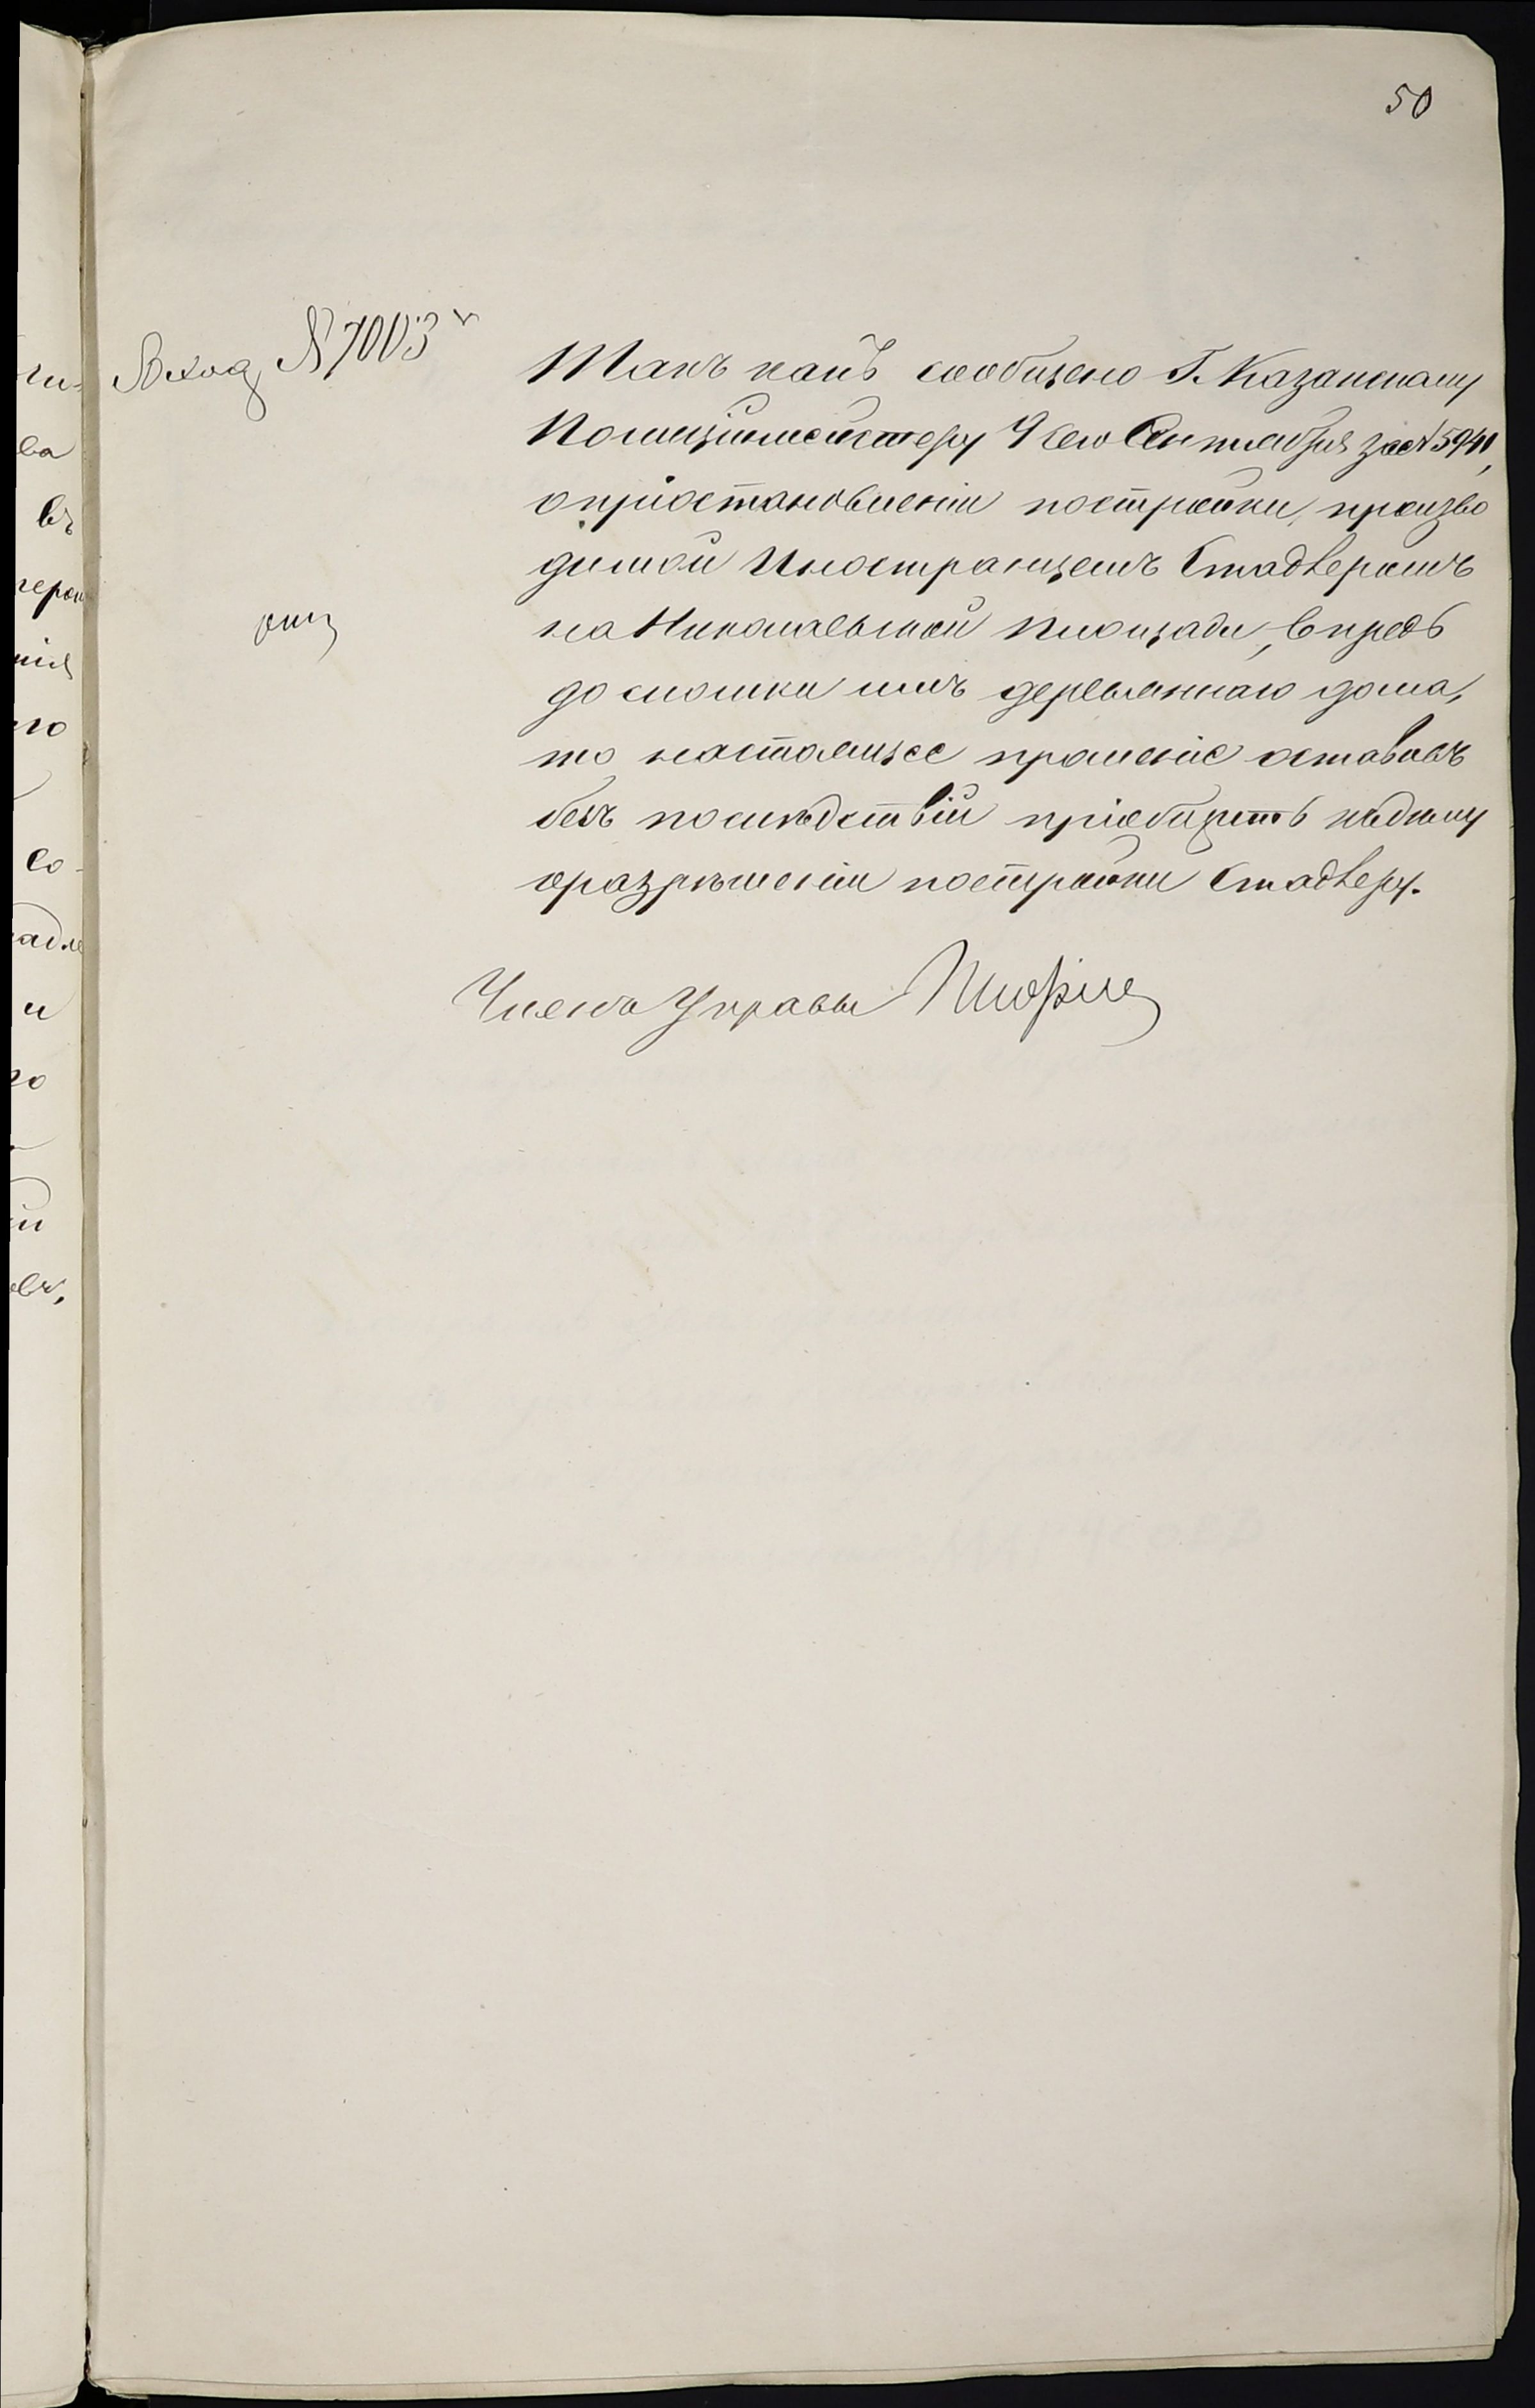 50
Вход. № 7003
Такъ какъ сообщено Г. Казанскому
Полиціймейстеру 9 сего Сентября за № 5941,
о пріостановленіи постройки, произво
димой Иностранцемъ Стадлеромъ
на Николаевской площади, впредь
до сломки имъ деревяннаго дома,
то настоящее прошеніе оставивъ
безъ послѣдствій пріобщить къ дѣлу
о разрѣшеніи постройки Стадлеру.
Членъ Управы
ва
въ
го
со
и
го